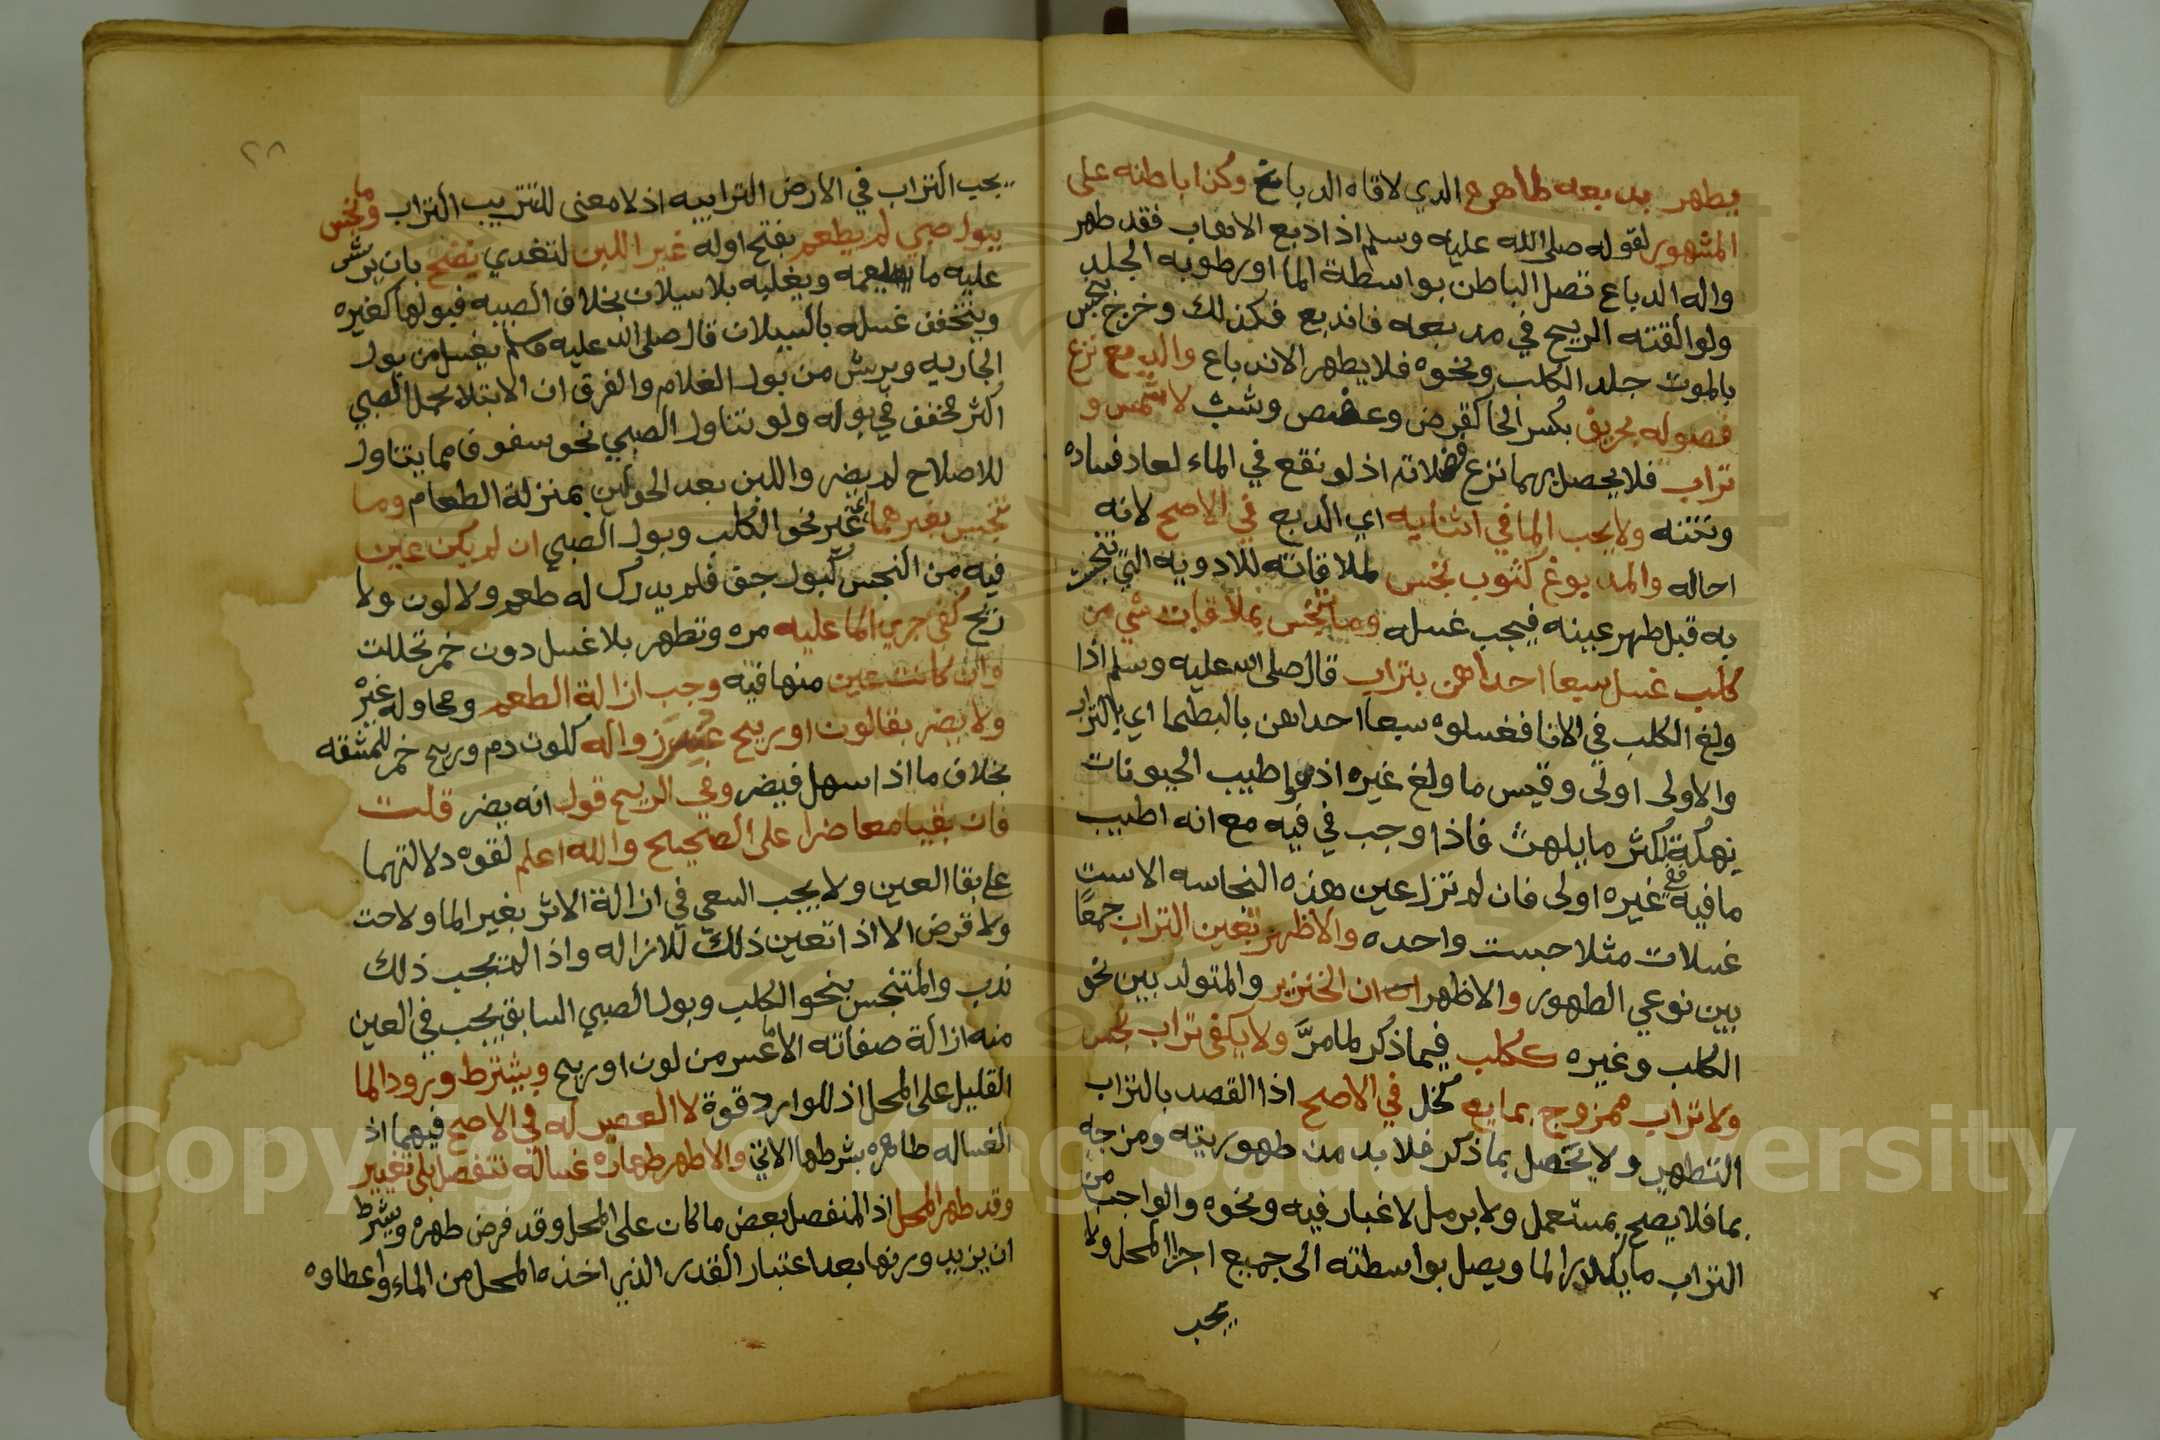 يطهر بدبغه ظاهره الذي لاقاه الدابغ وكذا باطنه على
المشهور لقوله صلى الله عليه وسلم اذا دبغ الاهاب فقد طهر
واله الدباغ تصل الباطن بواسطة الما او رطوبه الجلد
ولو القته الريح في مدبغه فاندبغ فكذلك وخرج بنجس
بالموت جلد الكلب ونحوه فلا يطهر الاندباغ والدبغ نزع
فضوله بحريف بكسر الحا كقرض وعفص وشث لا شمس و
تراب فلا يحصل بهما نزع فضلاته اذ لو نقع في الماء لعاد فساده
ونتنه ولا يجب الما في اثنايه اي الدبغ في الاصح لانه
احاله والمدبوغ كثوب نجس لملاقاته للادويه التي تنجست
به قبل طهر عينه فيجب غسله وما تنجس بملاقات شي من
كلب غسل سبعا احداهن بتراب قال صلى الله عليه وسلم اذا
ولغ الكلب في الانا فغسلوه سبعا احداهن بالبطحا اي بالتراب
والاولى اولى وقيس ما ولغ غيره اذ هو اطيب الحيونات
نهكة لكثر ما يلهث فاذا وجب في فيه مع انه اطيب
ما فيه ففي غيره اولى فان لم تزل عين هذه النجاسه الا ست
غسلات مثلا حبست واحده والاظهر تعين التراب جمعا
بين نوعي الطهور والاظهر ان الخنزير والمتولد بين نحو
الكلب وغيره ككلب فيما ذكر لما مرَّ ولا يكفي تراب نجس
ولا تراب ممزوج بمايع كخل في الاصح اذ القصد بالتراب
التطهير ولا يحصل بما ذكر فلا بد من طهوريته ومزجه
بما فلا يصح بمستعمل ولا برمل لا غبار فيه ونحوه والواجب من
التراب ما يكدر الما ويصل بواسطته الى جميع اجزا المحل ولا
يجب
٢٨
يجب التراب في الارض الترابيه اذ لا معنى للتتريب التراب وما نجس
ببول صبي لم يطعم بفتح اوله غير اللبن لتغدي نضح بان يرش
عليه ما يعمه ويغلبه بلا سيلان بخلاف الصبيه فبولها كغيره
ويتحقق غسله بالسيلان قال صلى الله عليه وسلم يغسل من بول
الجاريه ويرش من بول الغلام والفرق ان الابتلا بحمل الصبي
اكثر فخفف في بوله ولو تناول الصبي نحو سفوف مما يتناول
للاصلاح لم يضر واللبن بعد الحولين بمنزلة الطعام وما
تنجس بغيرهما اي غير نحو الكلب وبول الصبي ان لم يكن عين
فيه من النجس كبول جف فلم يدرك له طعم ولا لون ولا
ريح كفى جري الما عليه مره وتطهر بلا غسل دون خمر تخللت
وان كانت عين منها فيه وجب ازالة الطعم ومحاوله غيره
ولا يضر بقا لون او ريح عسر زواله كلون دم وريح خمر للمشقه
بخلاف ما اذا سهل فيضر وفي الريح قول انه يضر قلت
فان بقيا معا ضرا على الصحيح والله اعلم لقوه دلالتهما
على بقا العين ولا يجب السعي في ازالة الاثر بغير الما ولا حت
ولا قرض الا اذا تعين ذلك للازاله واذا لم يجب ذلك
ندب والمتنجس بنحو الكلب وبول الصبي السابق يجب في العين
منه ازالة صفاته الا ما عسر من لون او ريح ويشترط ورود الما
القليل على المحل اذ للوارد قوة لا العصر له في الاصح فيهما اذ
الغساله طاهره بشرطها الاتي والاظهر طهارة غساله تنفصل بلا تغيير
وقد طهر المحل اذ المنفصل بعض ما كان على المحل وقد فرض طهره ويشترط
ان يزيد وزنها بعد اعتبار القدر الذي اخذه المحل من الماء واعطاوه
Copyright © King Saud University